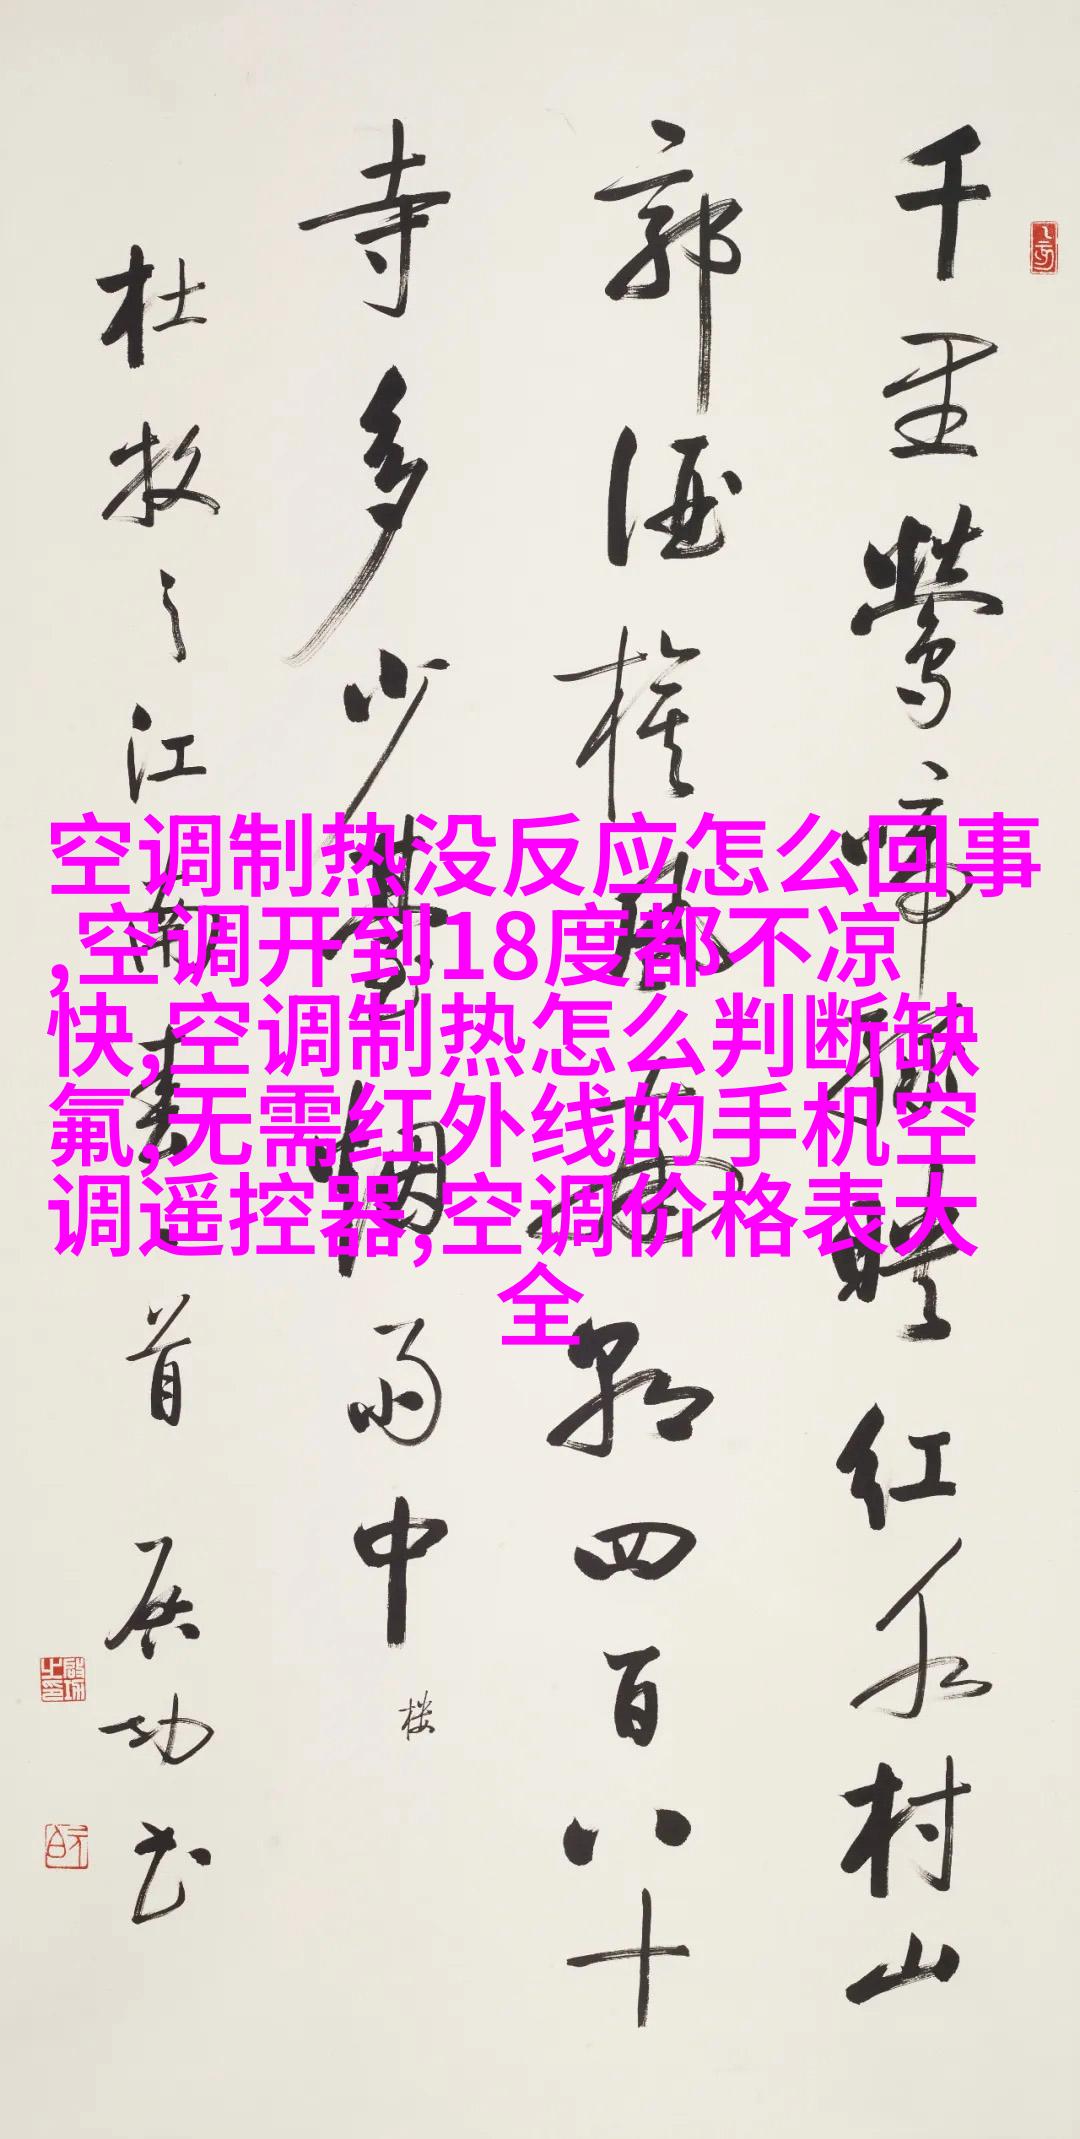 千里鶯啼綠暎紅水村山
郭酒旗風南朝四百八十
寺多少臺烟雨中
楼
杜牧之江南春一首 启功书
空调制热没反应怎么回事
,空调开到18度都不凉
快,空调制热怎么判断缺
氟,无需红外线的手机空
调遥控器,空调价格表大
全